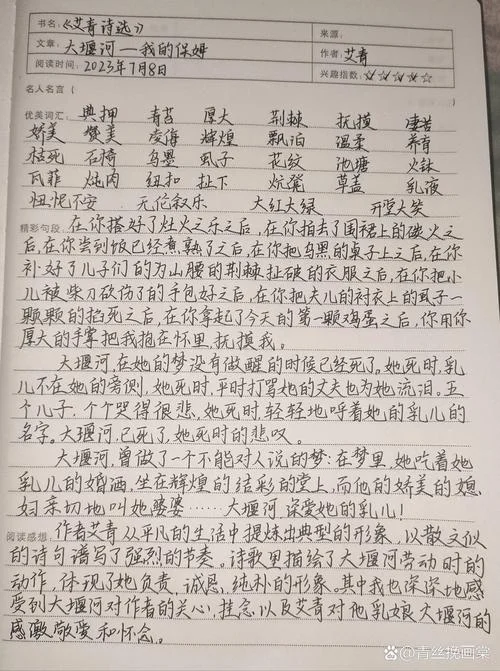 书名：《艾青诗选》 来源：
文章：大堰河—我的保姆 作者：艾青
阅读时间：2023年7月8日 兴趣指数：☆☆☆☆☆
名人名言（ ）
优美词汇： 典押 青苔 厚大 荆棘 抚摸 凄苦
娇美 赞美 凌侮 辉煌 飘泊 温柔 养育
枯死 石椅 乌黑 虱子 花纹 池塘 火钵
瓦菲 炖肉 纽扣 扯下 炕凳 草盖 乳液
忸怩不安 无伦叙乐 大红大绿 开堂大笑
精彩句段：在你搭好了灶火之乐之后，在你拍去了围裙上的碳火之
后，在你尝到饭已经煮熟了之后，在你把乌黑的桌子上之后，在你
补好了儿子们的为山腰的荆棘扯破的衣服之后，在你把小
儿被柴刀砍伤了的手包好之后，在你把夫儿的衬衣上的虱子一
颗颗的掐死之后，在你拿起了今天的第一颗鸡蛋之后，你用你
厚大的手掌把我抱在怀里，抚摸我。
大堰河，在她的梦没有做醒的时候已经死了。她死时，乳
儿不在她的旁侧，她死时，平时打骂她的丈夫也为她流泪。五
个儿子，个个哭得很悲，她死时，轻轻地呼着她的乳儿的
名字。大堰河，已死了，她死时的悲叹。
大堰河，曾做了一个不能对人说的梦：在梦里，她吃着她
乳儿的婚酒，坐在辉煌的结彩的堂上，而他的娇美的媳
妇亲切地叫她婆婆……大堰河，深爱她的乳儿！
阅读感想：作者艾青从平凡的生活中提炼出典型的形象，以散文似
的诗句谱写了强烈的节奏。诗歌里描绘了大堰河劳动时的
动作，体现了她负责，诚恳，纯朴的形象。其中我也深深地感
受到大堰河对作者的关心，挂念以及艾青对他乳娘大堰河的
感激，敬爱和怀念。
青丝挽画堂